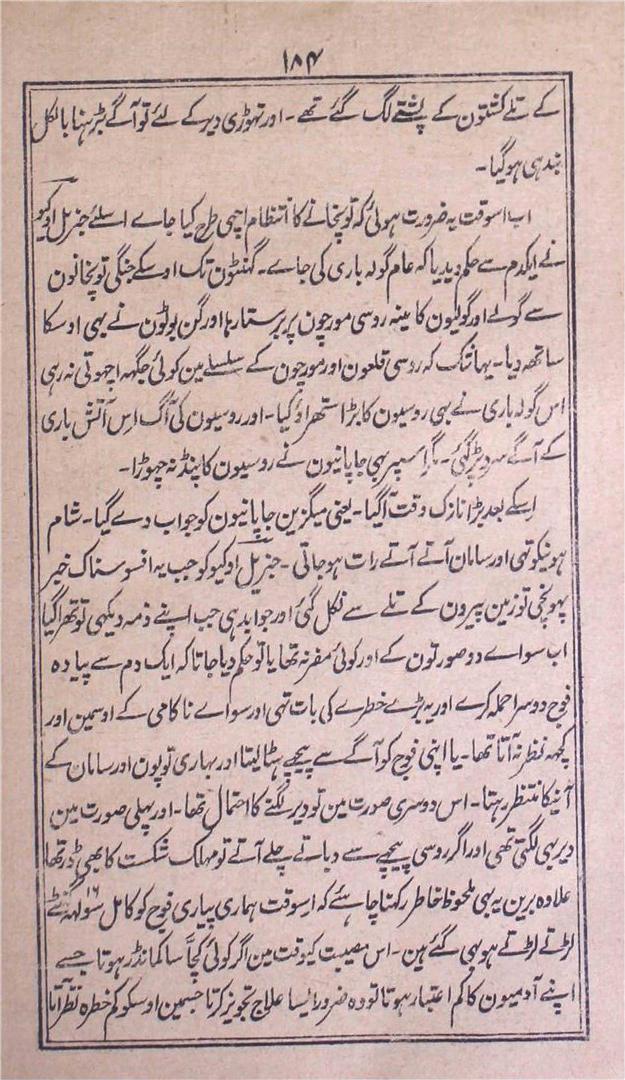 ۱۸۴
کے تلے کشتون کے پشتے لگ گئے تھے ۔ اور تہوڑی دیر کے لئے تو آگے بڑہنا بالکل
بند ہی ہو گیا ۔
اب اسوقت یہ ضرورت ہوئی کہ توپخانے کا انتظام اچہی طرح کیا جاے اسلئے جنریل اوکیو
نے ایکدم سے حکم دیدیا کہ عام گولہ باری کی جاے ۔ گہنٹون تک اوسکے جنگی توپخانون
سے گولے اور گولیون کا مینہ روسی مورچون پر برستا رہا اور گن بوٹون نے بہی اوسکا
ساتھہ دیا ۔ یہانتک کہ روسی قلعون اور مورچون کے سلسلے مین کوئی جگہہ اچہوتی نہ رہی
اس گولہ باری نے بہی روسیون کا بڑا ستھراؤ کیا ۔ اور روسیون کی آگ اس آتش باری
کے آگے سرد پڑ گئی ۔ مگر اسپر بہی جاپانیون نے روسیون کا پنڈ نہ چہوڑا ۔
اسکے بعد بڑا نازک وقت آگیا ۔ یعنی میگزین جاپانیون کو جواب دے گیا ۔ شام
ہونیکو تہی اور سامان آتے آتے رات ہو جاتی ۔ جنریل اوکیو کو جب یہ افسوسناک خبر
پہونچی تو زمین پیرون کے تلے سے نکل گئی اور جوابدہی جب اپنے ذمہ دیکہی تو تھرا گیا
اب سواے دو صورتون کے اور کوئی مفر نہ تھا یا تو حکم دیا جاتا کہ ایک دم سے پیادہ
فوج دوسرا حملہ کرے اور یہ بڑے خطرے کی بات تہی اور سواے ناکامی کے اوسمین اور
کچہہ نظر نہ آتا تھا ۔ یا اپنی فوج کو آگے سے پیچہے ہٹا لیتا اور بہاری توپون اور سامان کے
آنیکا منتظر رہتا ۔ اس دوسری صورت مین تو دیر لگنے کا احتمال تھا ۔ اور پہلی صورت مین
دیر بہی لگتی تھی اور اگر روسی پیچہے سے دباتے چلے آتے تو مہلک شکست کا بھی ڈر تھا
علاوہ برین یہ بہی ملحوظ خاطر رکہنا چاہئے کہ اسوقت ہماری پیاری فوج کو کامل سولہہ ۱۶ گہنٹے
لڑتے لڑتے ہو بہی گئے ہین ۔ اس مصیبت کیوقت مین اگر کوئی کچا سا کمانڈر ہوتا جسے
اپنے آدمیون کا کم اعتبار ہوتا تو وہ ضرور ایسا علاج تجویز کرتا جسمین اوسکو کم خطرہ نظر آتا